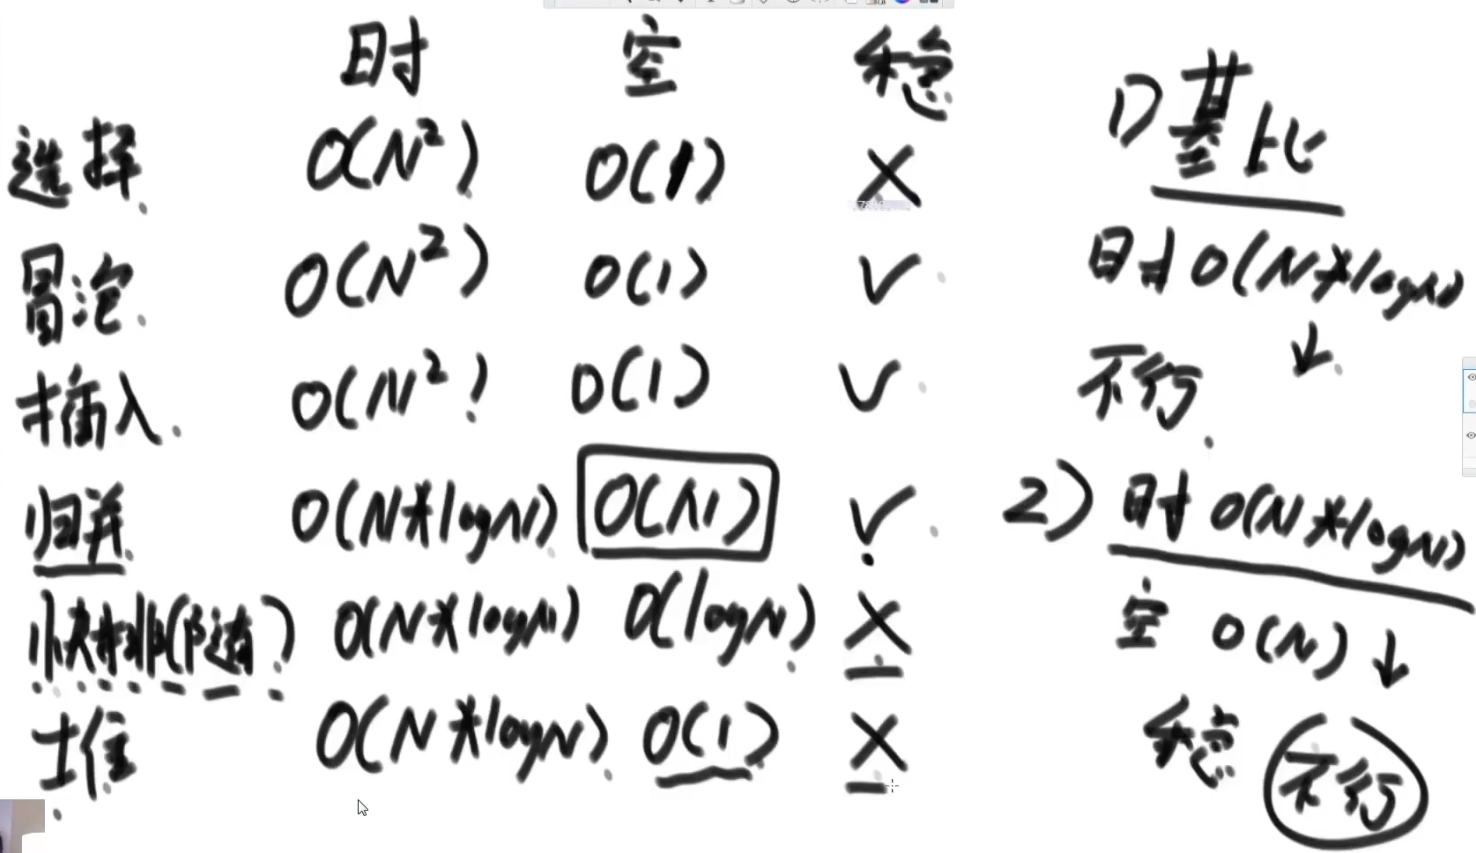 时 空 稳
选择 O(N²) O(1) X
冒泡 O(N²) O(1) ✓
插入 O(N²) O(1) ✓
归并 O(N*logN) O(N) ✓
快排(随) O(N*logN) O(logN) X
堆 O(N*logN) O(1) X
1) 基比
时 O(N*logN) ↓
不行
2) 时 O(N*logN)
空 O(N) ↓
稳 不行